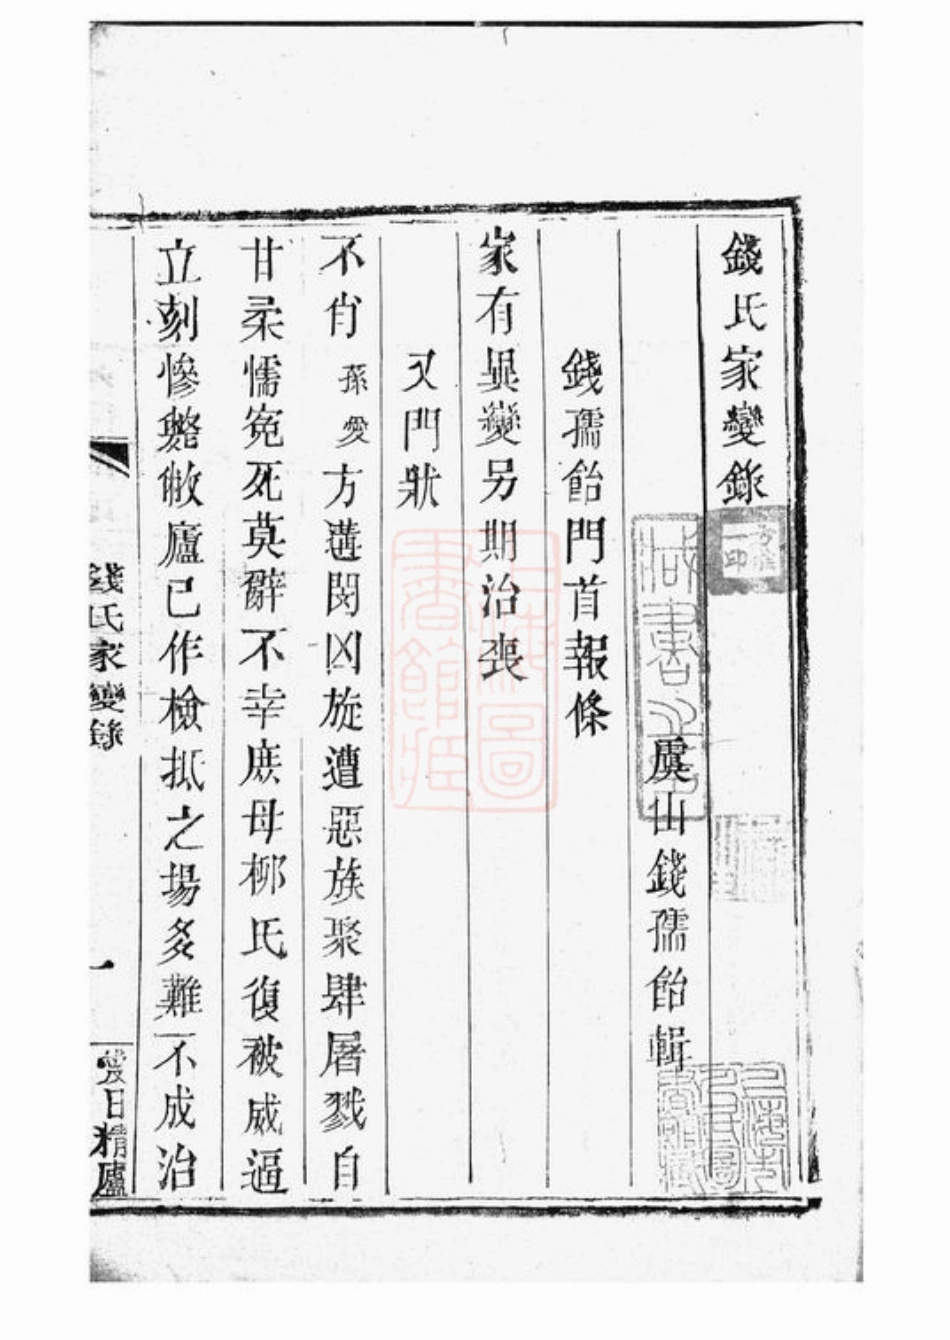 錢氏家變錄
虞山錢孺飴輯
錢孺飴門首報條
家有異變另期治喪
又門狀
不肖孫愛方遘閔凶旋遭惡族聚肆屠戮自
甘柔懦寃死莫辭不幸庶母柳氏復被威逼
立刻慘斃敝廬已作檢抵之場多難不成治
錢氏家變錄
一
愛日精廬